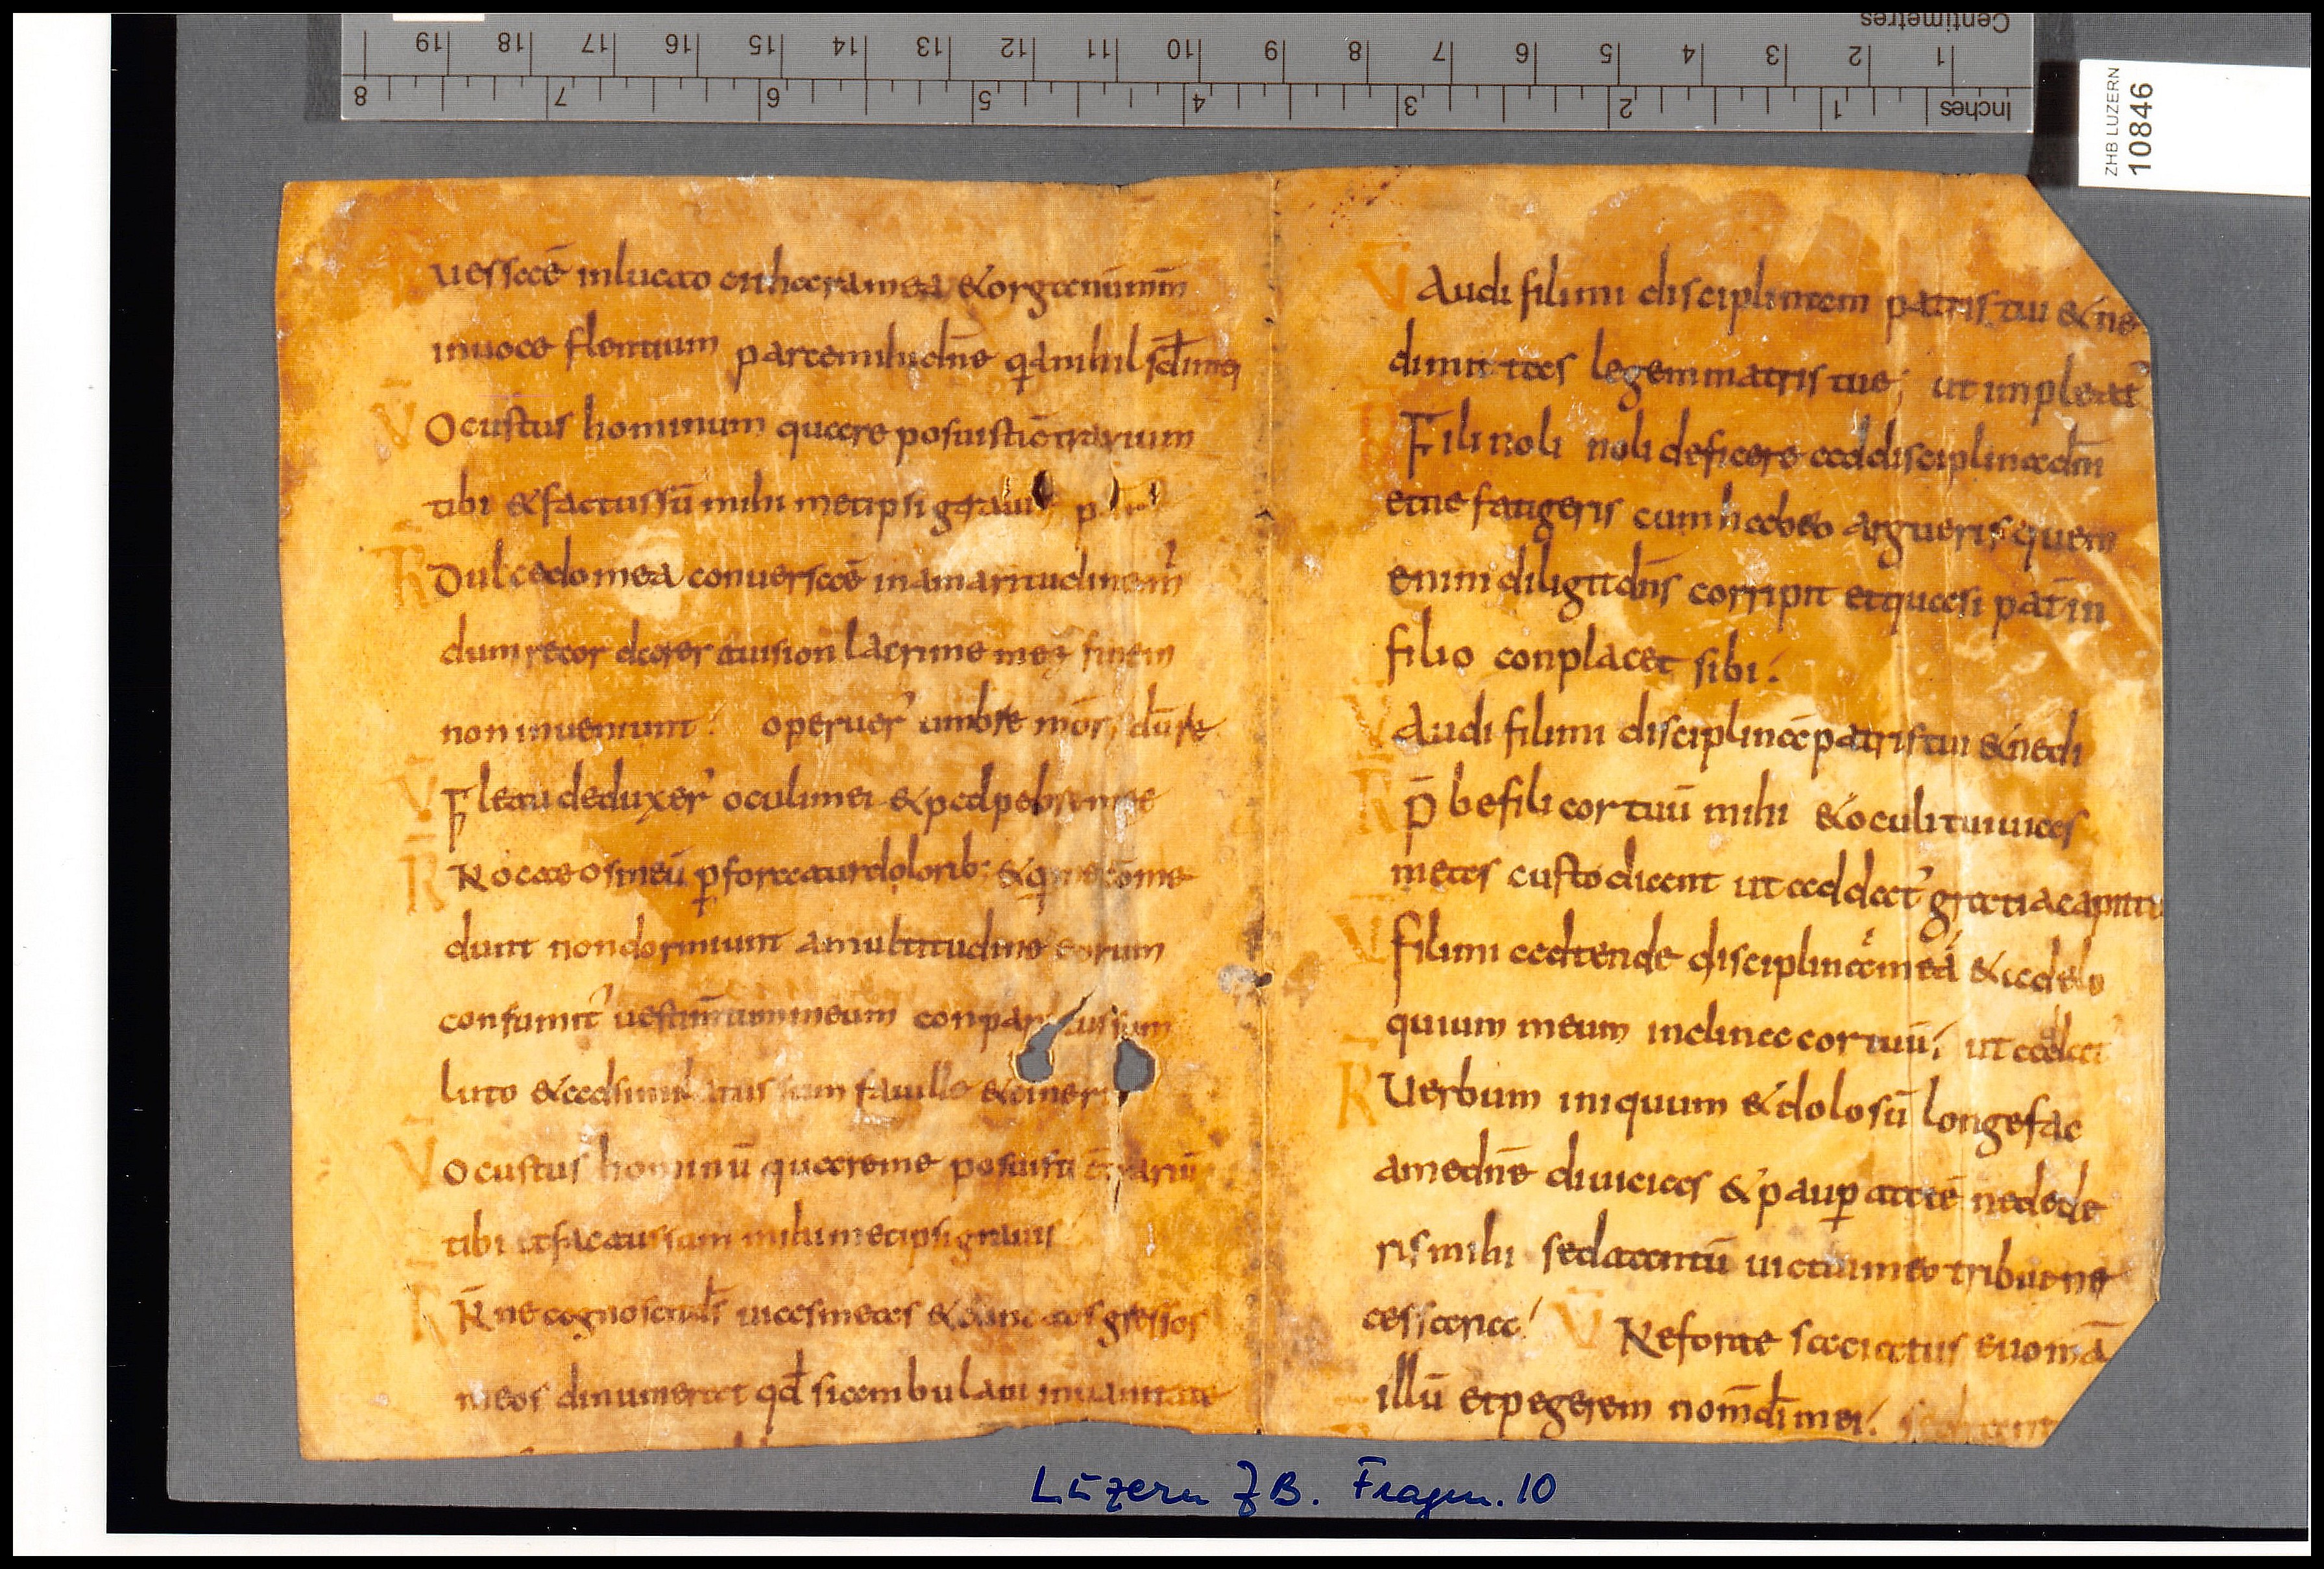 Centimetres
1 2 3 4 5 6 7 8 9 10 11 12 13 14 15 16 17 18 19
Inches 1 2 3 4 5 6 7 8
ZHB LUZERN
10846
uersa ē in lucto cithara mea & organū mm
in uoce flentium parce mihi dn̄e q̄a nihil sc̄t
V̄ O custus hominum quare posuisti c̄trarium
tibi & factus sū mihimetipsi grauis
R̄ Dulcedo mea conuersa ē in amaritudinem
dum recor lacrime meę finem
non inueniunt operuer̄ umbre mor
V̄ Fletu deduxer̄ oculi mei & palpebre mee
R̄ Nocte os meū p̱foratur dolorib: & q̱ me come
dunt non dormiunt a multitudine eorum
consumit̄ uestim̄tum meum conparatus sum
luto & adsimilatus sum fauille & cineri
V̄ O custus hominū quare me posuisti c̄trariū
tibi et factus sum mihimetipsi grauis
R̄ N̄ne cognoscit d̄s uias meas & cunctos gressos
meos dinumerat qd̄ si ambulaui in uanitate
V̄ Audi fili mi disciplinam patris tui & ne
dimittas legem matris tue; ut impleat̄
R̄ Fili noli noli deficere ad disciplina dn̄i
et ne fatigeris cum hab eo argueris quem
enim diligit dn̄s corripit et quasi pat̄ in
filio conplacet sibi.
V̄ Audi fili mi disciplinā patris tui & ne di
R̄ P̄be fili cor tuū mihi & oculi tui uias
meas custodiant ut addat̄ gratia capiti
V̄ fili mi adtende disciplinā meā & ad elo
quium meum inclina cor tuū; ut addat
R̄ Uerbum iniquum & dolosū longe fac
a me dn̄e diuicias & paup̱tatē ne dede
ris mihi sed tantū uictui meo tribue ne
cessaria! V̄ Ne forte saciatus euomā
illū et pegerem nom̄ dī mei!
Luzern ZB. Fragm. 10